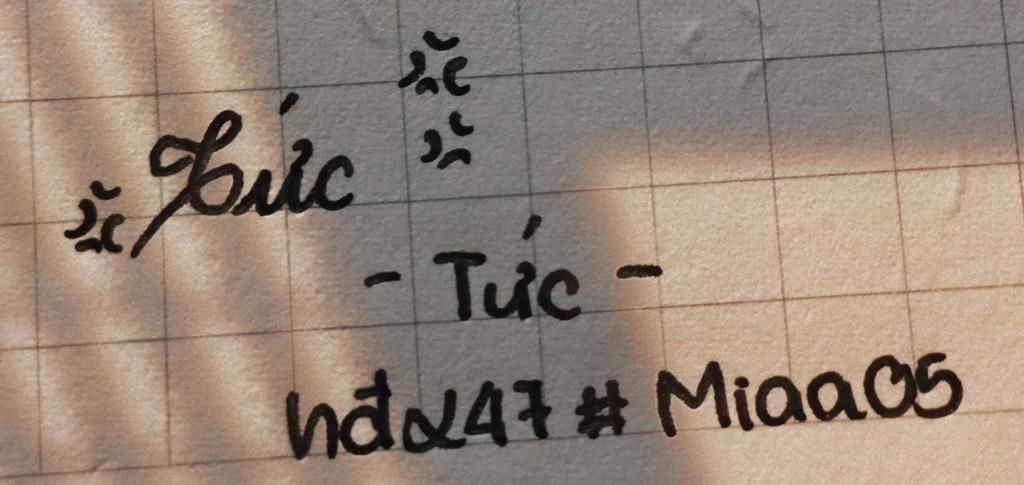 Tức
- Tức -
hđα47 # Miaa05